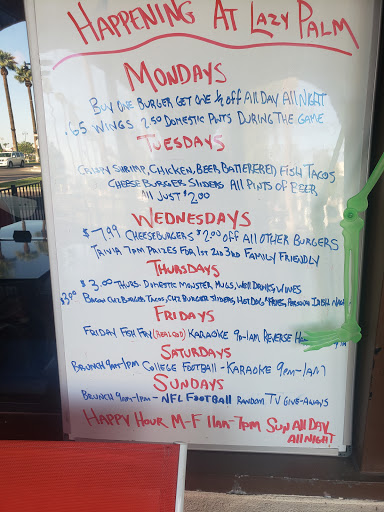 HAPPENING AT LAZY PALM
MONDAYS
BUY ONE BURGER GET ONE ½ OFF ALL DAY ALL NIGHT
.65 WINGS 2.50 DOMESTIC PINTS DURING THE GAME
TUESDAYS
CRISPY SHRIMP, CHICKEN, BEER BATTERERED FISH TACOS
CHEESE BURGER SLIDERS ALL PINTS OF BEER
All JUST $2.00
WEDNESDAYS
$7.99 CHEESEBURGERS $2.00 OFF ALL OTHER BURGERS
TRIVIA 7PM PRIZES FOR 1ST 2ND 3RD FAMILY FRIENDLY
THURSDAYS
$3.00 THURS. DOMESTIC MONSTER MUGS, WELL DRINKS, WINES
$3.00 BACON CHZ BURGER TACOS, CHZ BURGER SLIDERS, HOT DOG & FRIES, IRISH NACHOS
FRIDAYS
FRIDAY FISH FRY (REAL COD) KARAOKE 9P-1AM REVERSE
SATURDAYS
BRUNCH 9AM-1PM COLLEGE FOOTBALL - KARAOKE 9PM-1AM
SUNDAYS
BRUNCH 9AM-1PM - NFL FOOTBALL RANDOM TV GIVE-AWAYS
HAPPY HOUR M-F 11AM-7PM SUN ALL DAY
ALL NIGHT